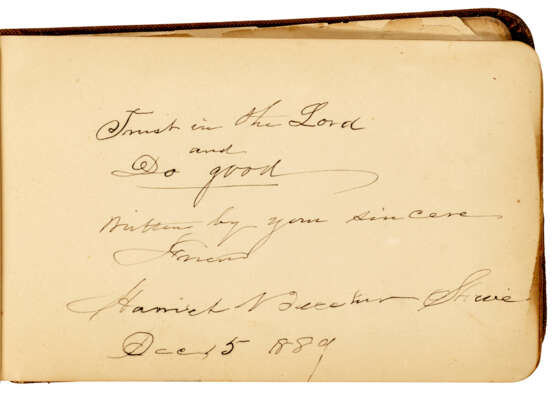 Trust in the Lord
and
Do good
Written by your sincere
Friend
Harriet Beecher Stowe
Dec 5 1889